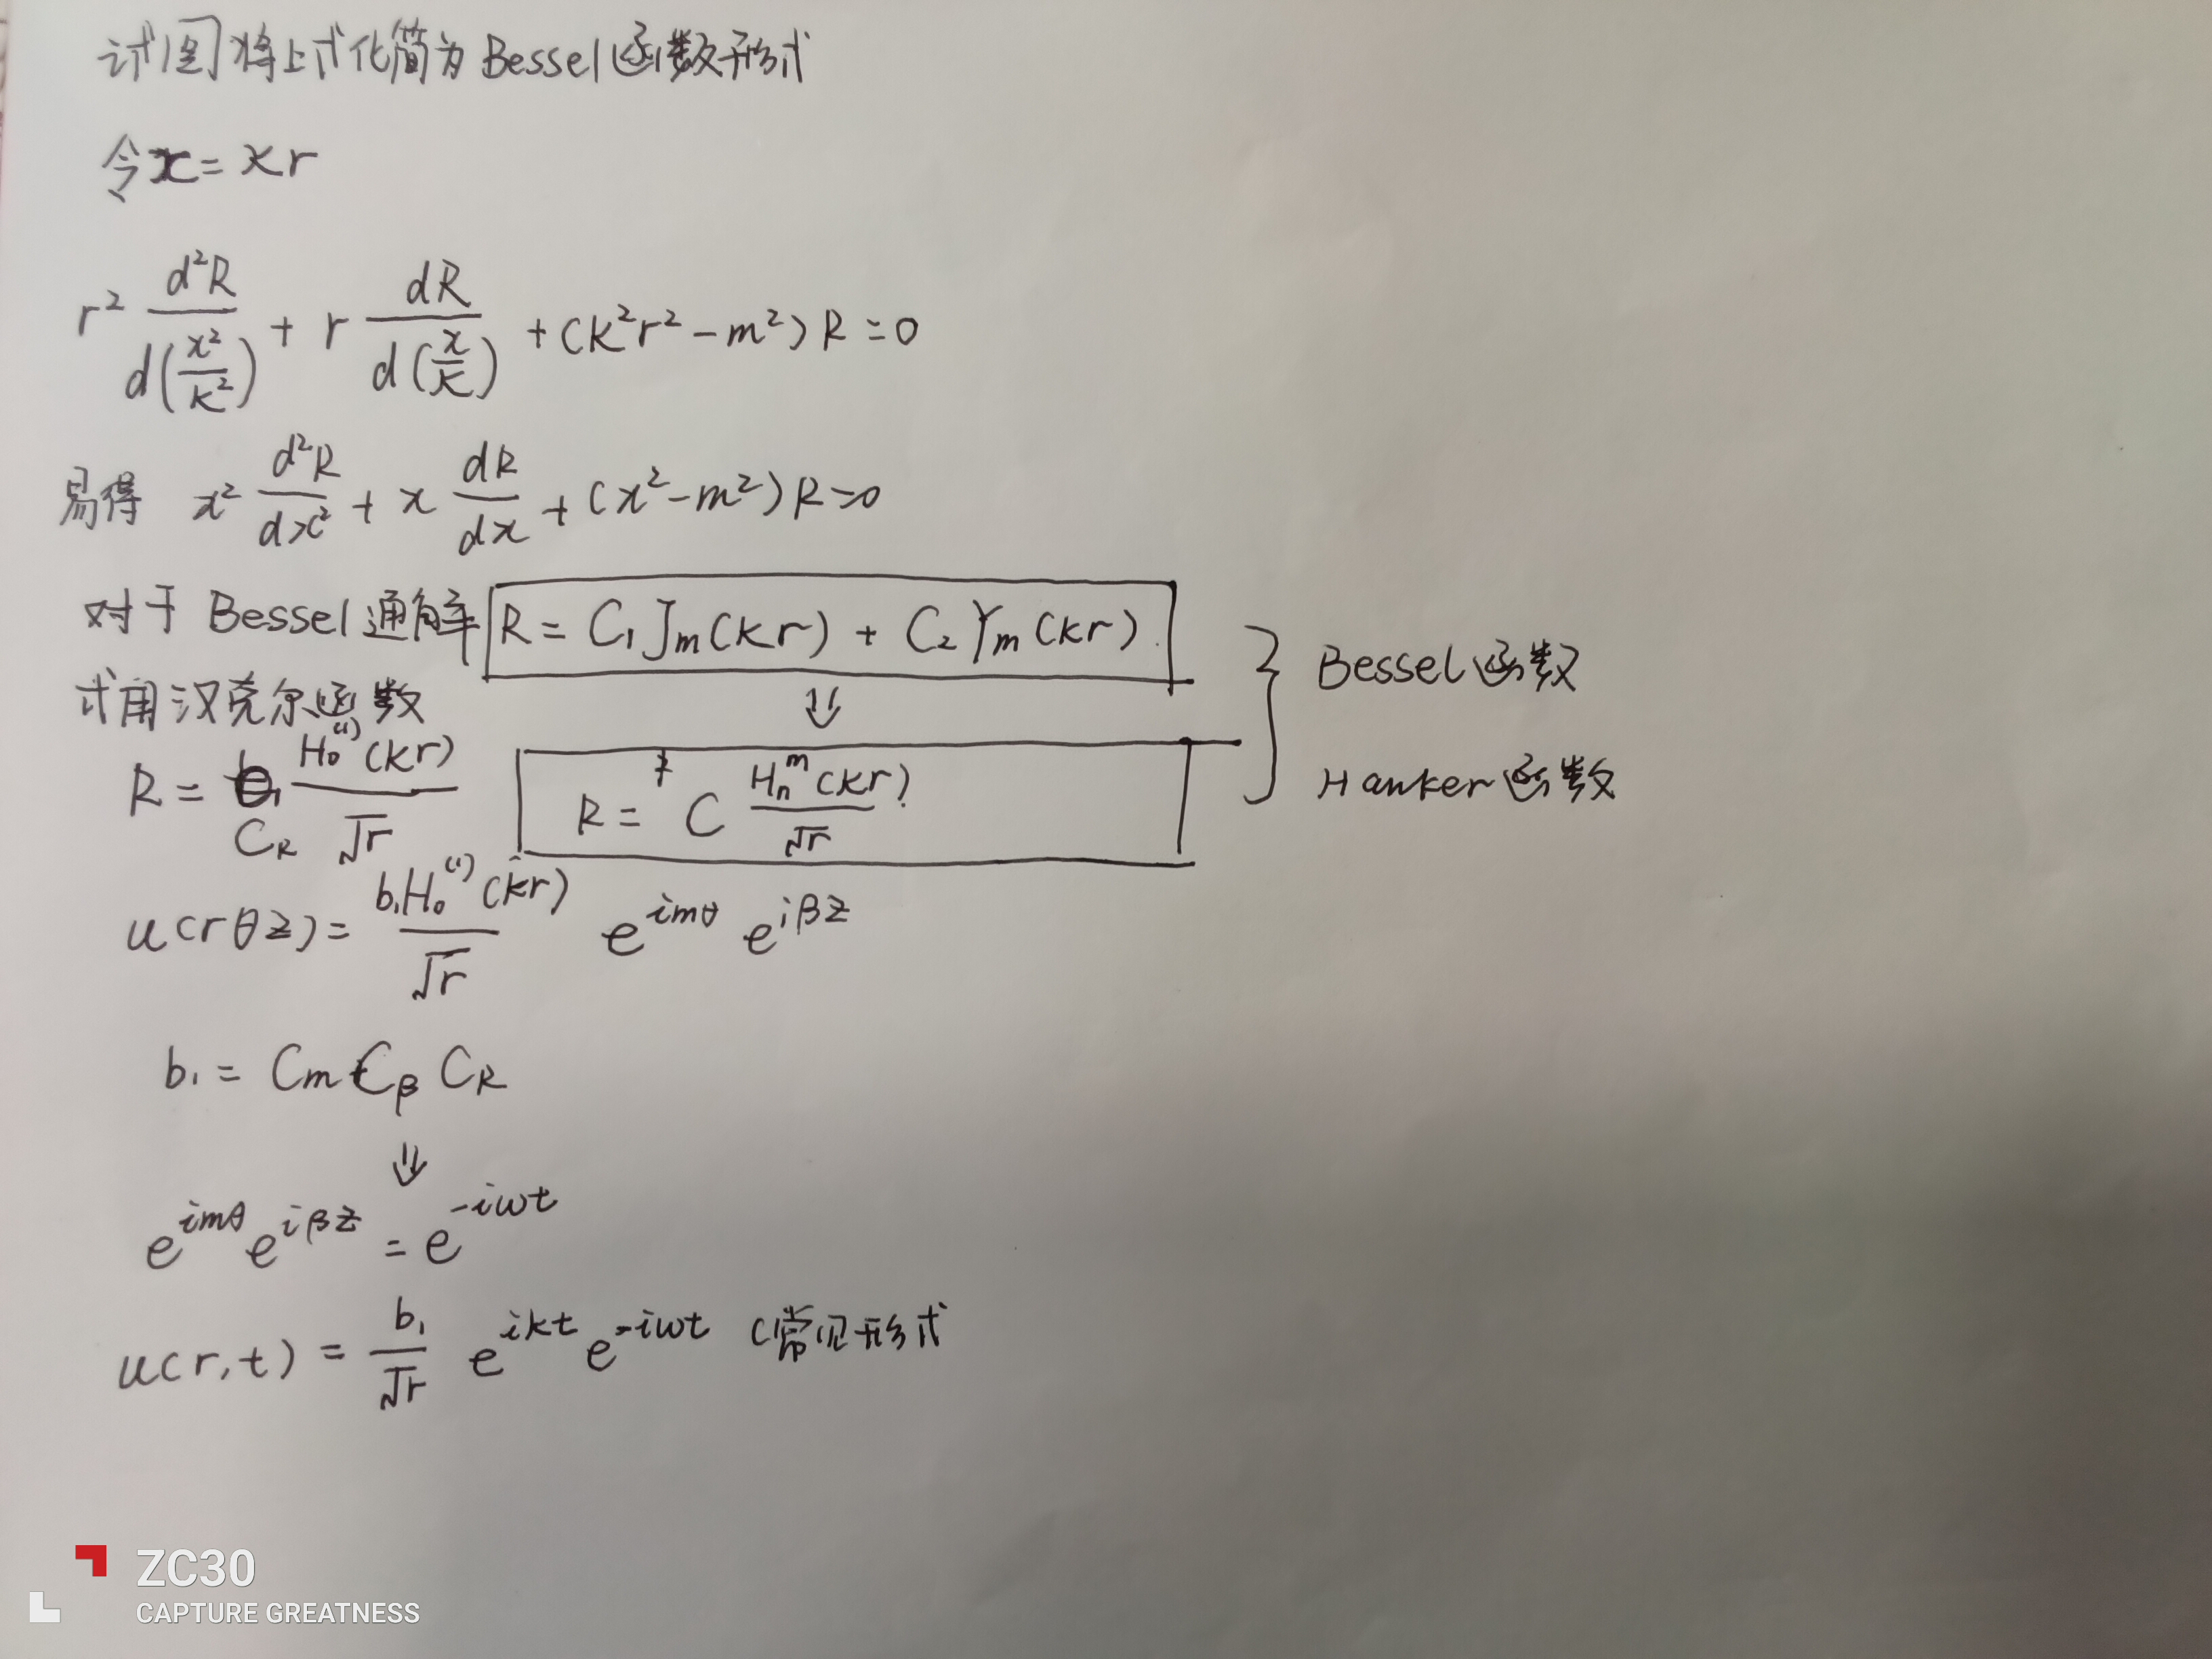 试图将上式化简为Bessel函数形式
令x=kr
r² d²R/d(x²/k²) + r dR/d(x/k) + (k²r²-m²)R=0
易得 x² d²R/dx² + x dR/dx + (x²-m²)R=0
对于Bessel通解 R= C₁Jm(kr) + C₂Ym(kr)
⇓
Bessel函数
式用汉克尔函数
R= C_R H₀⁽¹⁾(kr)/√r
R= C Hₙᵐ(kr)/√r ?
Hanker函数
u(rθz)= b₁H₀⁽¹⁾(kr)/√r e^{imθ} e^{iβz}
b₁= Cm Cβ C_R
⇓
e^{imθ} e^{iβz} = e^{-iωt}
u(r,t) = b₁/√r e^{ikt} e^{-iωt} (常见形式
ZC30
CAPTURE GREATNESS